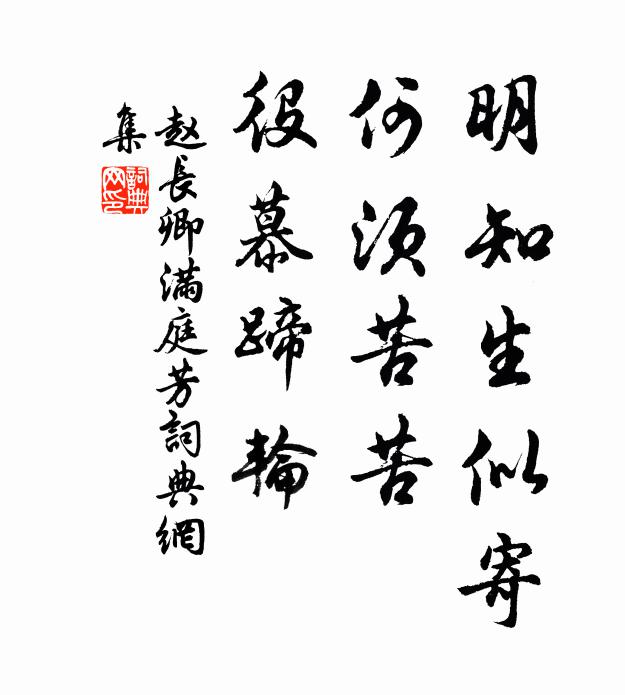 明知生似寄
何须苦苦
役慕蹄輪
赵長卿满庭芳詞典網
集
詞典
网印